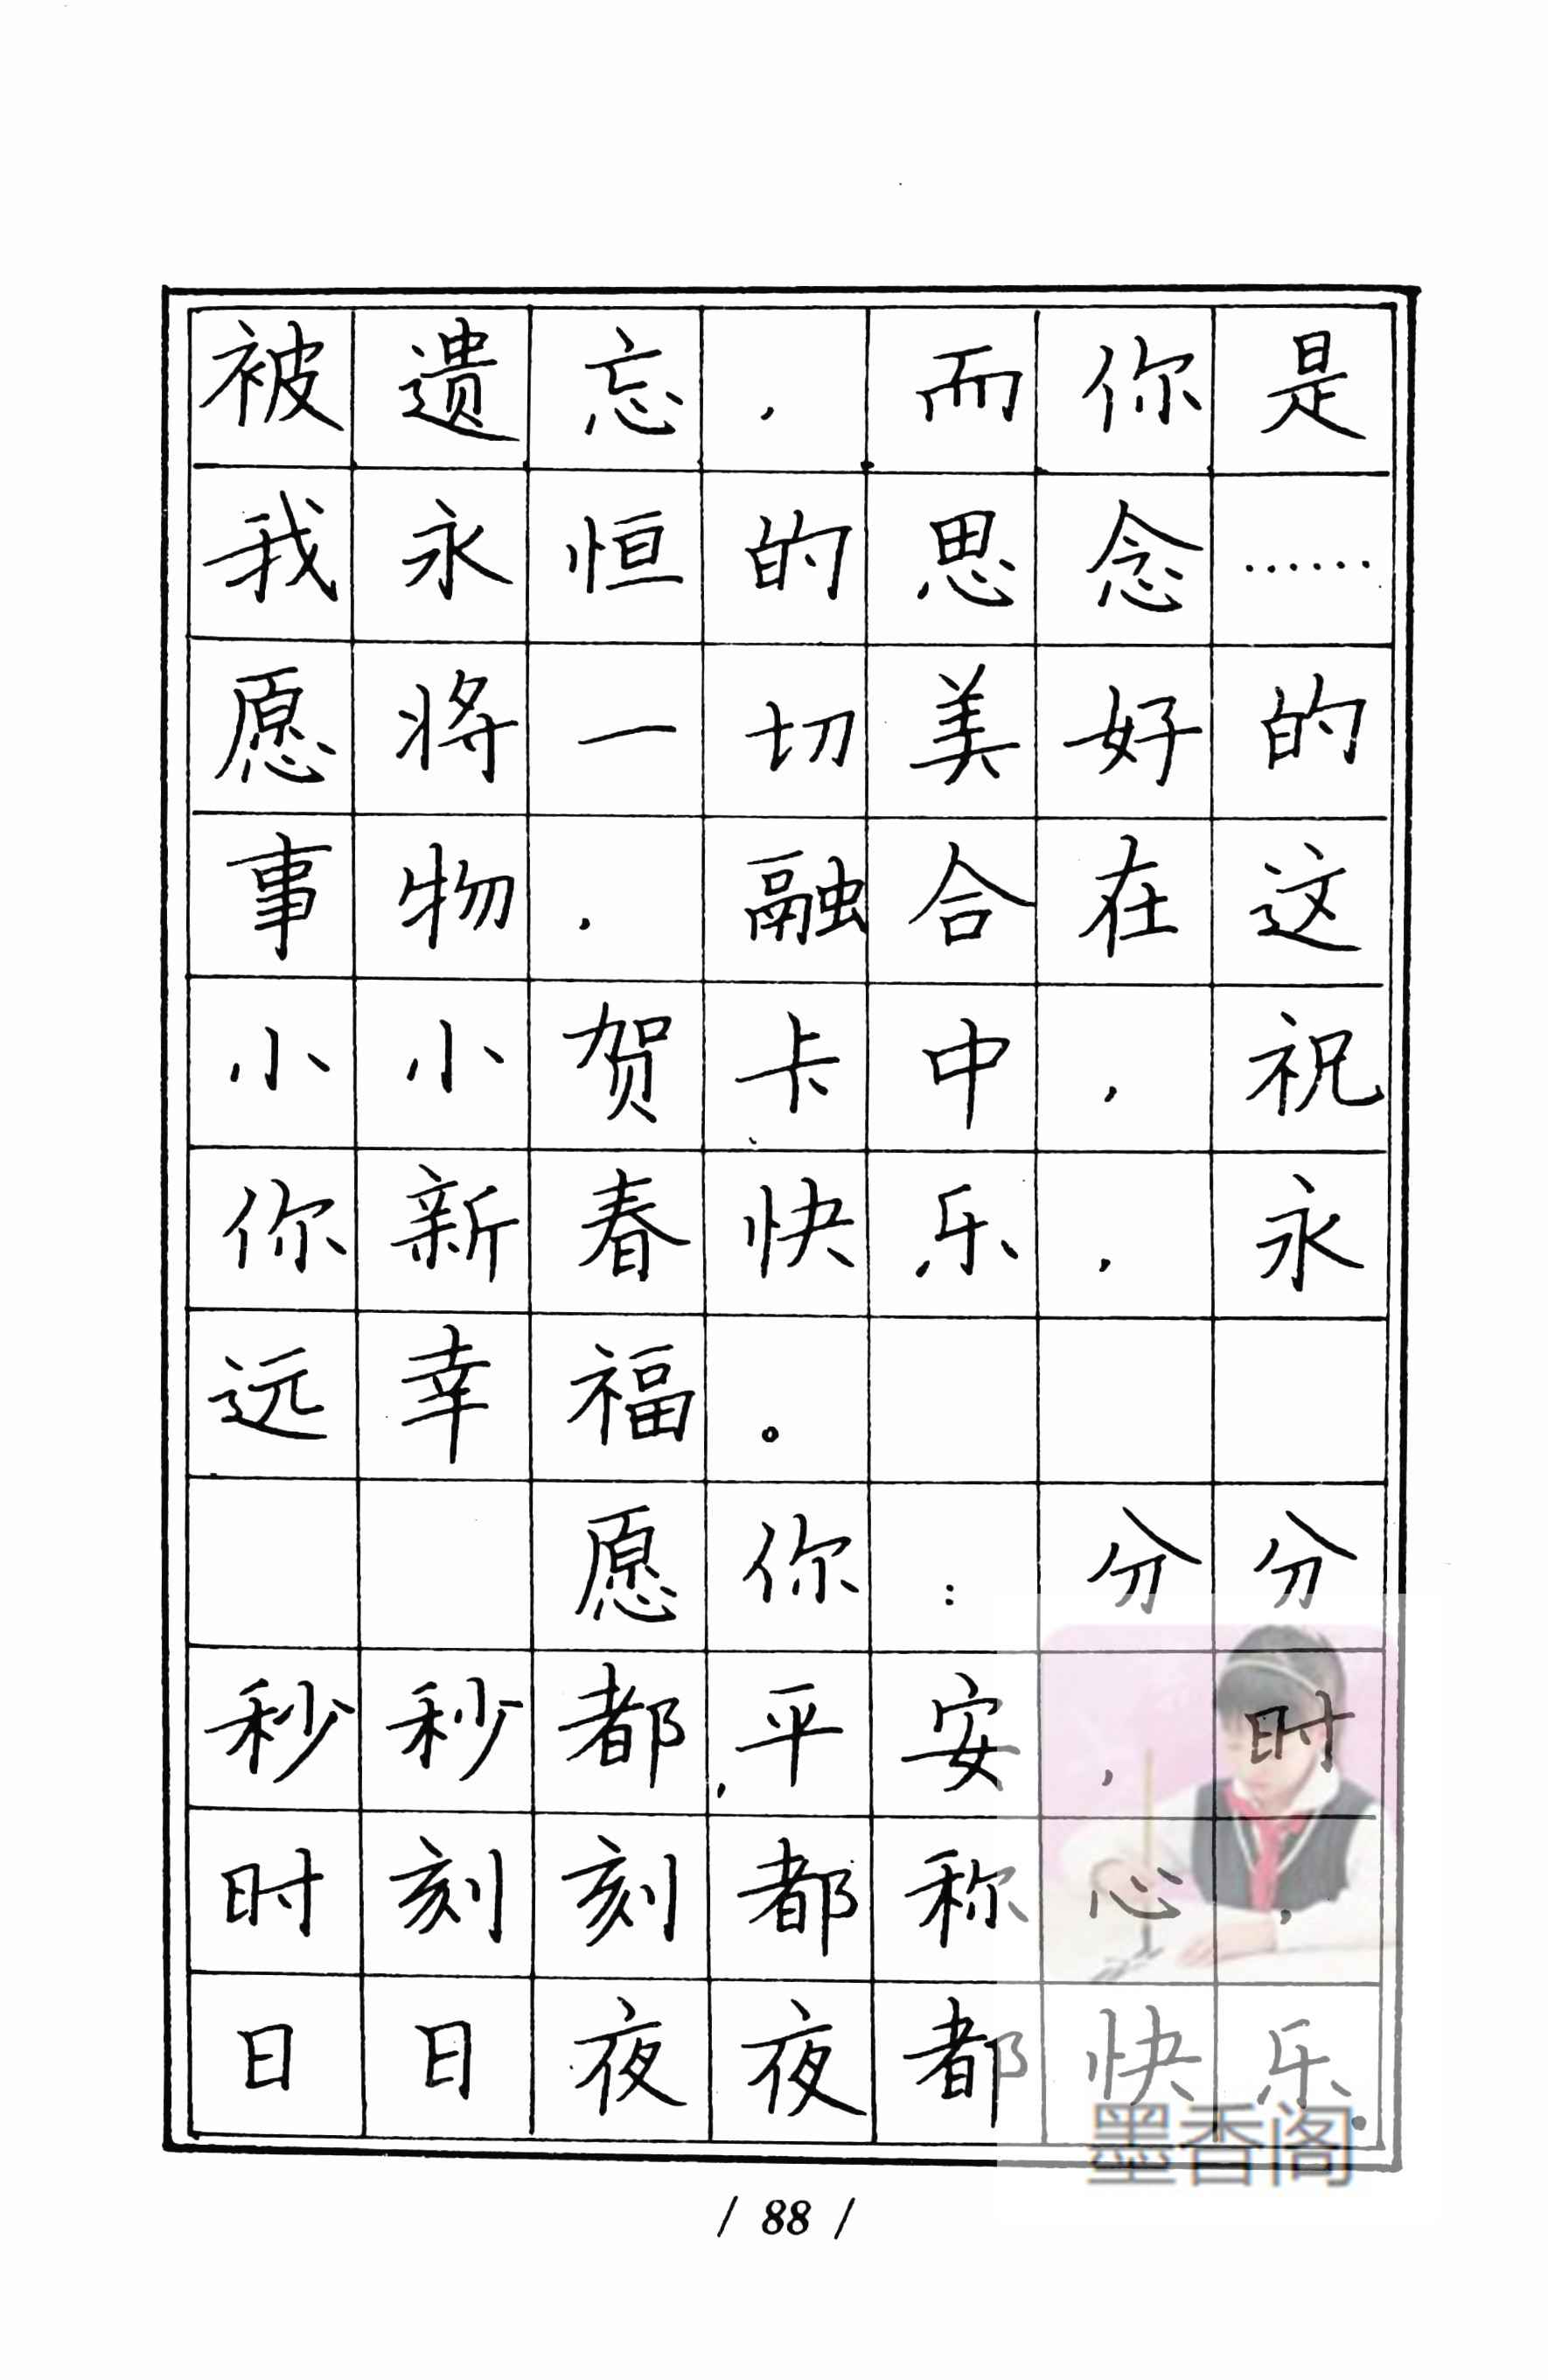 被遗忘，而你是
我永恒的思念……
愿将一切美好的
事物，融合在这
小小贺卡中，祝
你新春快乐，永
远幸福。
愿你：分分
秒秒都平安，时
时刻刻都称心，
日日夜夜都快乐。
墨香阁
/ 88 /